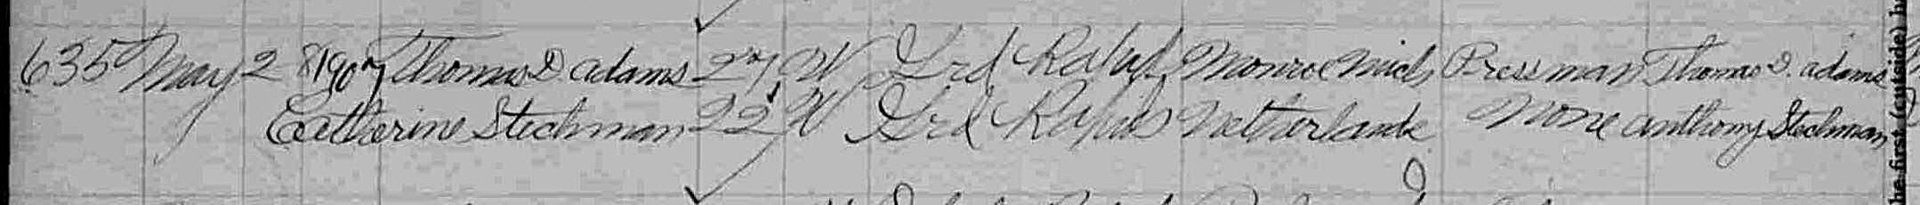 635 May 28 1907 Thomas D adams 27 W Grd Rapids Monroe Mich, Pressman Thomas D. adams
Catherine Stechman 22 W Grd Rapids Netherlands None anthony Stechman
he first (outside)